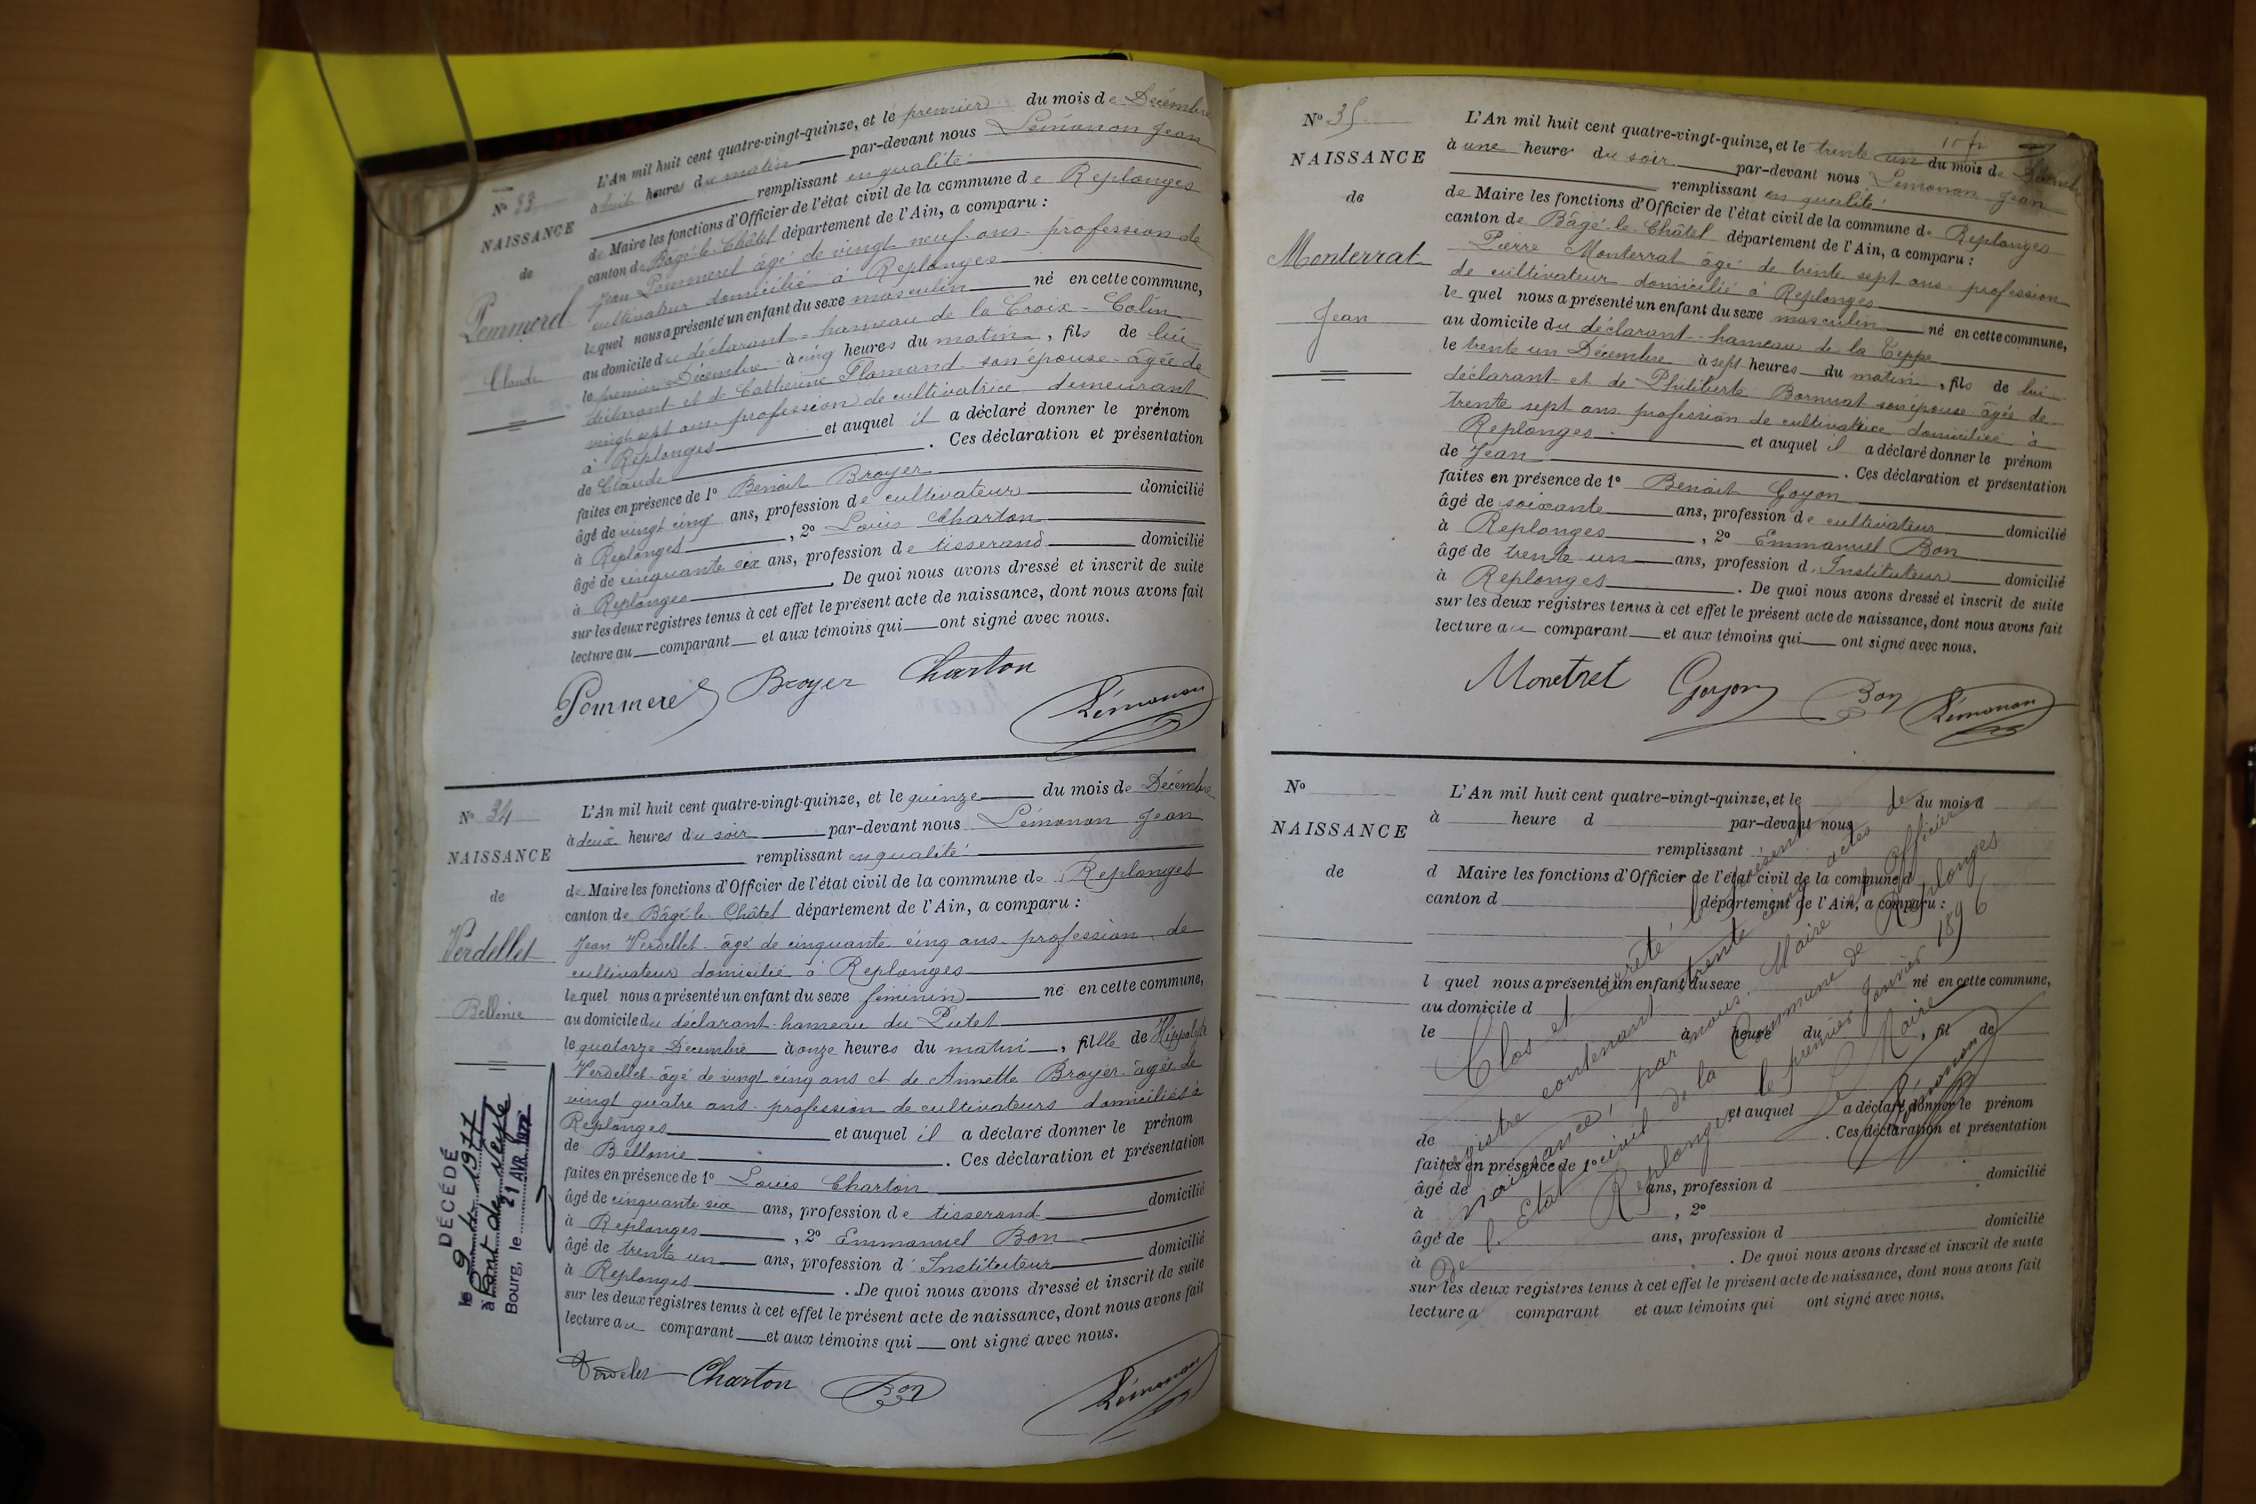 N° 33
NAISSANCE
de
Pommerel
Claude
L'An mil huit cent quatre-vingt-quinze, et le premier du mois de Décembre
à huit heures du matin par-devant nous Lémonon Jean
remplissant en qualité
de Maire les fonctions d'Officier de l'état civil de la commune de Replonges
canton de Bâgé-le-Châtel département de l'Ain, a comparu :
Jean Pommerel âgé de vingt neuf ans profession de
cultivateur domicilié à Replonges
lequel nous a présenté un enfant du sexe masculin né en cette commune,
au domicile du déclarant hameau de la Croix-Colin
le premier Décembre à cinq heures du matin, fils de lui
déclarant et de Catherine Flamand son épouse âgée de
vingt sept ans profession de cultivatrice demeurant
à Replonges et auquel il a déclaré donner le prénom
de Claude . Ces déclaration et présentation
faites en présence de 1° Benoit Broyer
âgé de vingt cinq ans, profession de cultivateur domicilié
à Replonges , 2° Louis Charton
âgé de cinquante six ans, profession de tisserand domicilié
à Replonges . De quoi nous avons dressé et inscrit de suite
sur les deux registres tenus à cet effet le présent acte de naissance, dont nous avons fait
lecture au comparant et aux témoins qui ont signé avec nous.
Pommerel Broyer Charton
Lémonon
N° 34
NAISSANCE
de
Verdellet
Bellonie
L'An mil huit cent quatre-vingt-quinze, et le quinze du mois de Décembre
à deux heures du soir par-devant nous Lémonon Jean
remplissant en qualité
de Maire les fonctions d'Officier de l'état civil de la commune de Replonges
canton de Bâgé-le-Châtel département de l'Ain, a comparu :
Jean Verdellet âgé de cinquante cinq ans profession de
cultivateur domicilié à Replonges
lequel nous a présenté un enfant du sexe féminin né en cette commune,
au domicile du déclarant hameau du Putet
le quatorze Décembre à onze heures du matin, fille de Hippolyte
Verdellet âgé de vingt cinq ans et de Annette Broyer âgée de
vingt quatre ans profession de cultivateurs domiciliés à
Replonges et auquel il a déclaré donner le prénom
de Bellonie . Ces déclaration et présentation
faites en présence de 1° Louis Charton
âgé de cinquante six ans, profession de tisserand domicilié
à Replonges , 2° Emmanuel Bon
âgé de trente un ans, profession d'Instituteur domicilié
à Replonges . De quoi nous avons dressé et inscrit de suite
sur les deux registres tenus à cet effet le présent acte de naissance, dont nous avons fait
lecture au comparant et aux témoins qui ont signé avec nous.
Charton Bon
Lémonon
DÉCÉDÉ
le 9.4.1977
à Pont de Veyle
Bourg, le 21 AVR. 1977
N° 35
NAISSANCE
de
Monterrat
Jean
L'An mil huit cent quatre-vingt-quinze, et le trente un du mois de Décembre
à une heure du soir par-devant nous Lémonon Jean
remplissant en qualité
de Maire les fonctions d'Officier de l'état civil de la commune de Replonges
canton de Bâgé-le-Châtel département de l'Ain, a comparu :
Pierre Monterrat âgé de trente sept ans profession
de cultivateur domicilié à Replonges
lequel nous a présenté un enfant du sexe masculin né en cette commune,
au domicile du déclarant hameau de la Teppe
le trente un Décembre à sept heures du matin, fils de lui
déclarant et de Philiberte Bornuat son épouse âgée de
trente sept ans profession de cultivatrice domiciliée à
Replonges et auquel il a déclaré donner le prénom
de Jean . Ces déclaration et présentation
faites en présence de 1° Benoit Goyon
âgé de soixante ans, profession de cultivateur domicilié
à Replonges , 2° Emmanuel Bon
âgé de trente un ans, profession d'Instituteur domicilié
à Replonges . De quoi nous avons dressé et inscrit de suite
sur les deux registres tenus à cet effet le présent acte de naissance, dont nous avons fait
lecture au comparant et aux témoins qui ont signé avec nous.
Monetret Goyon Bon Lémonon
N°
NAISSANCE
de
L'An mil huit cent quatre-vingt-quinze, et le du mois d
à heure d par-devant nous
remplissant
d Maire les fonctions d'Officier de l'état civil de la commune d
canton d département de l'Ain, a comparu :
l quel nous a présenté un enfant du sexe né en cette commune,
au domicile d
le à heure du , fil de
et auquel a déclaré donner le prénom
de . Ces déclaration et présentation
faites en présence de 1°
âgé de ans, profession d domicilié
à , 2°
âgé de ans, profession d domicilié
à . De quoi nous avons dressé et inscrit de suite
sur les deux registres tenus à cet effet le présent acte de naissance, dont nous avons fait
lecture a comparant et aux témoins qui ont signé avec nous.
Clos et arrêté le présent
registre contenant trente cinq actes de
naissance, par nous, Maire et Officier
De l'Etat civil de la Commune de Replonges
Replonges le premier Janvier 1896
Le Maire
Lémonon